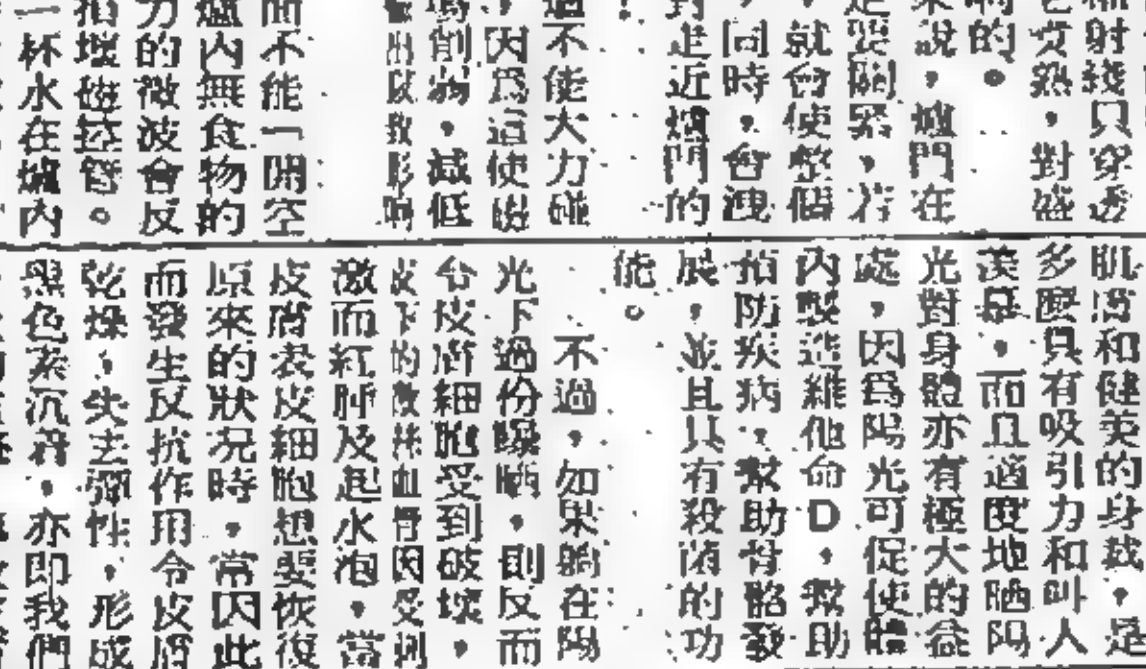 輻射綫只穿透
它受熱，對盛
的。
來說，爐門在
是要關緊，若
，就會使整個
，同時，會洩
對走近爐門的
！
過不能大力碰
，因爲這使磁
塲削弱，減低
出以致影响
而不能「開空
爐內無食物的
力的微波會反
損壞磁控管。
一杯水在爐內
肌膚和健美的身裁，是
多麼具有吸引力和叫人
羡慕，而且適度地晒陽
光對身體亦有極大的益
處，因爲陽光可促使體
內製造維他命D，幫助
預防疾病，幫助骨骼發
展，並且具有殺菌的功
能。
不過，如果躺在陽
光下過份曝晒，則反而
令皮膚細胞受到破壞，
皮下的微絲血管因受刺
激而紅肿及起水泡，當
皮膚表皮細胞想要恢復
原來的狀况時，常因此
而發生反抗作用令皮膚
乾燥，失去彈性，形成
黑色素沉着，亦即我們